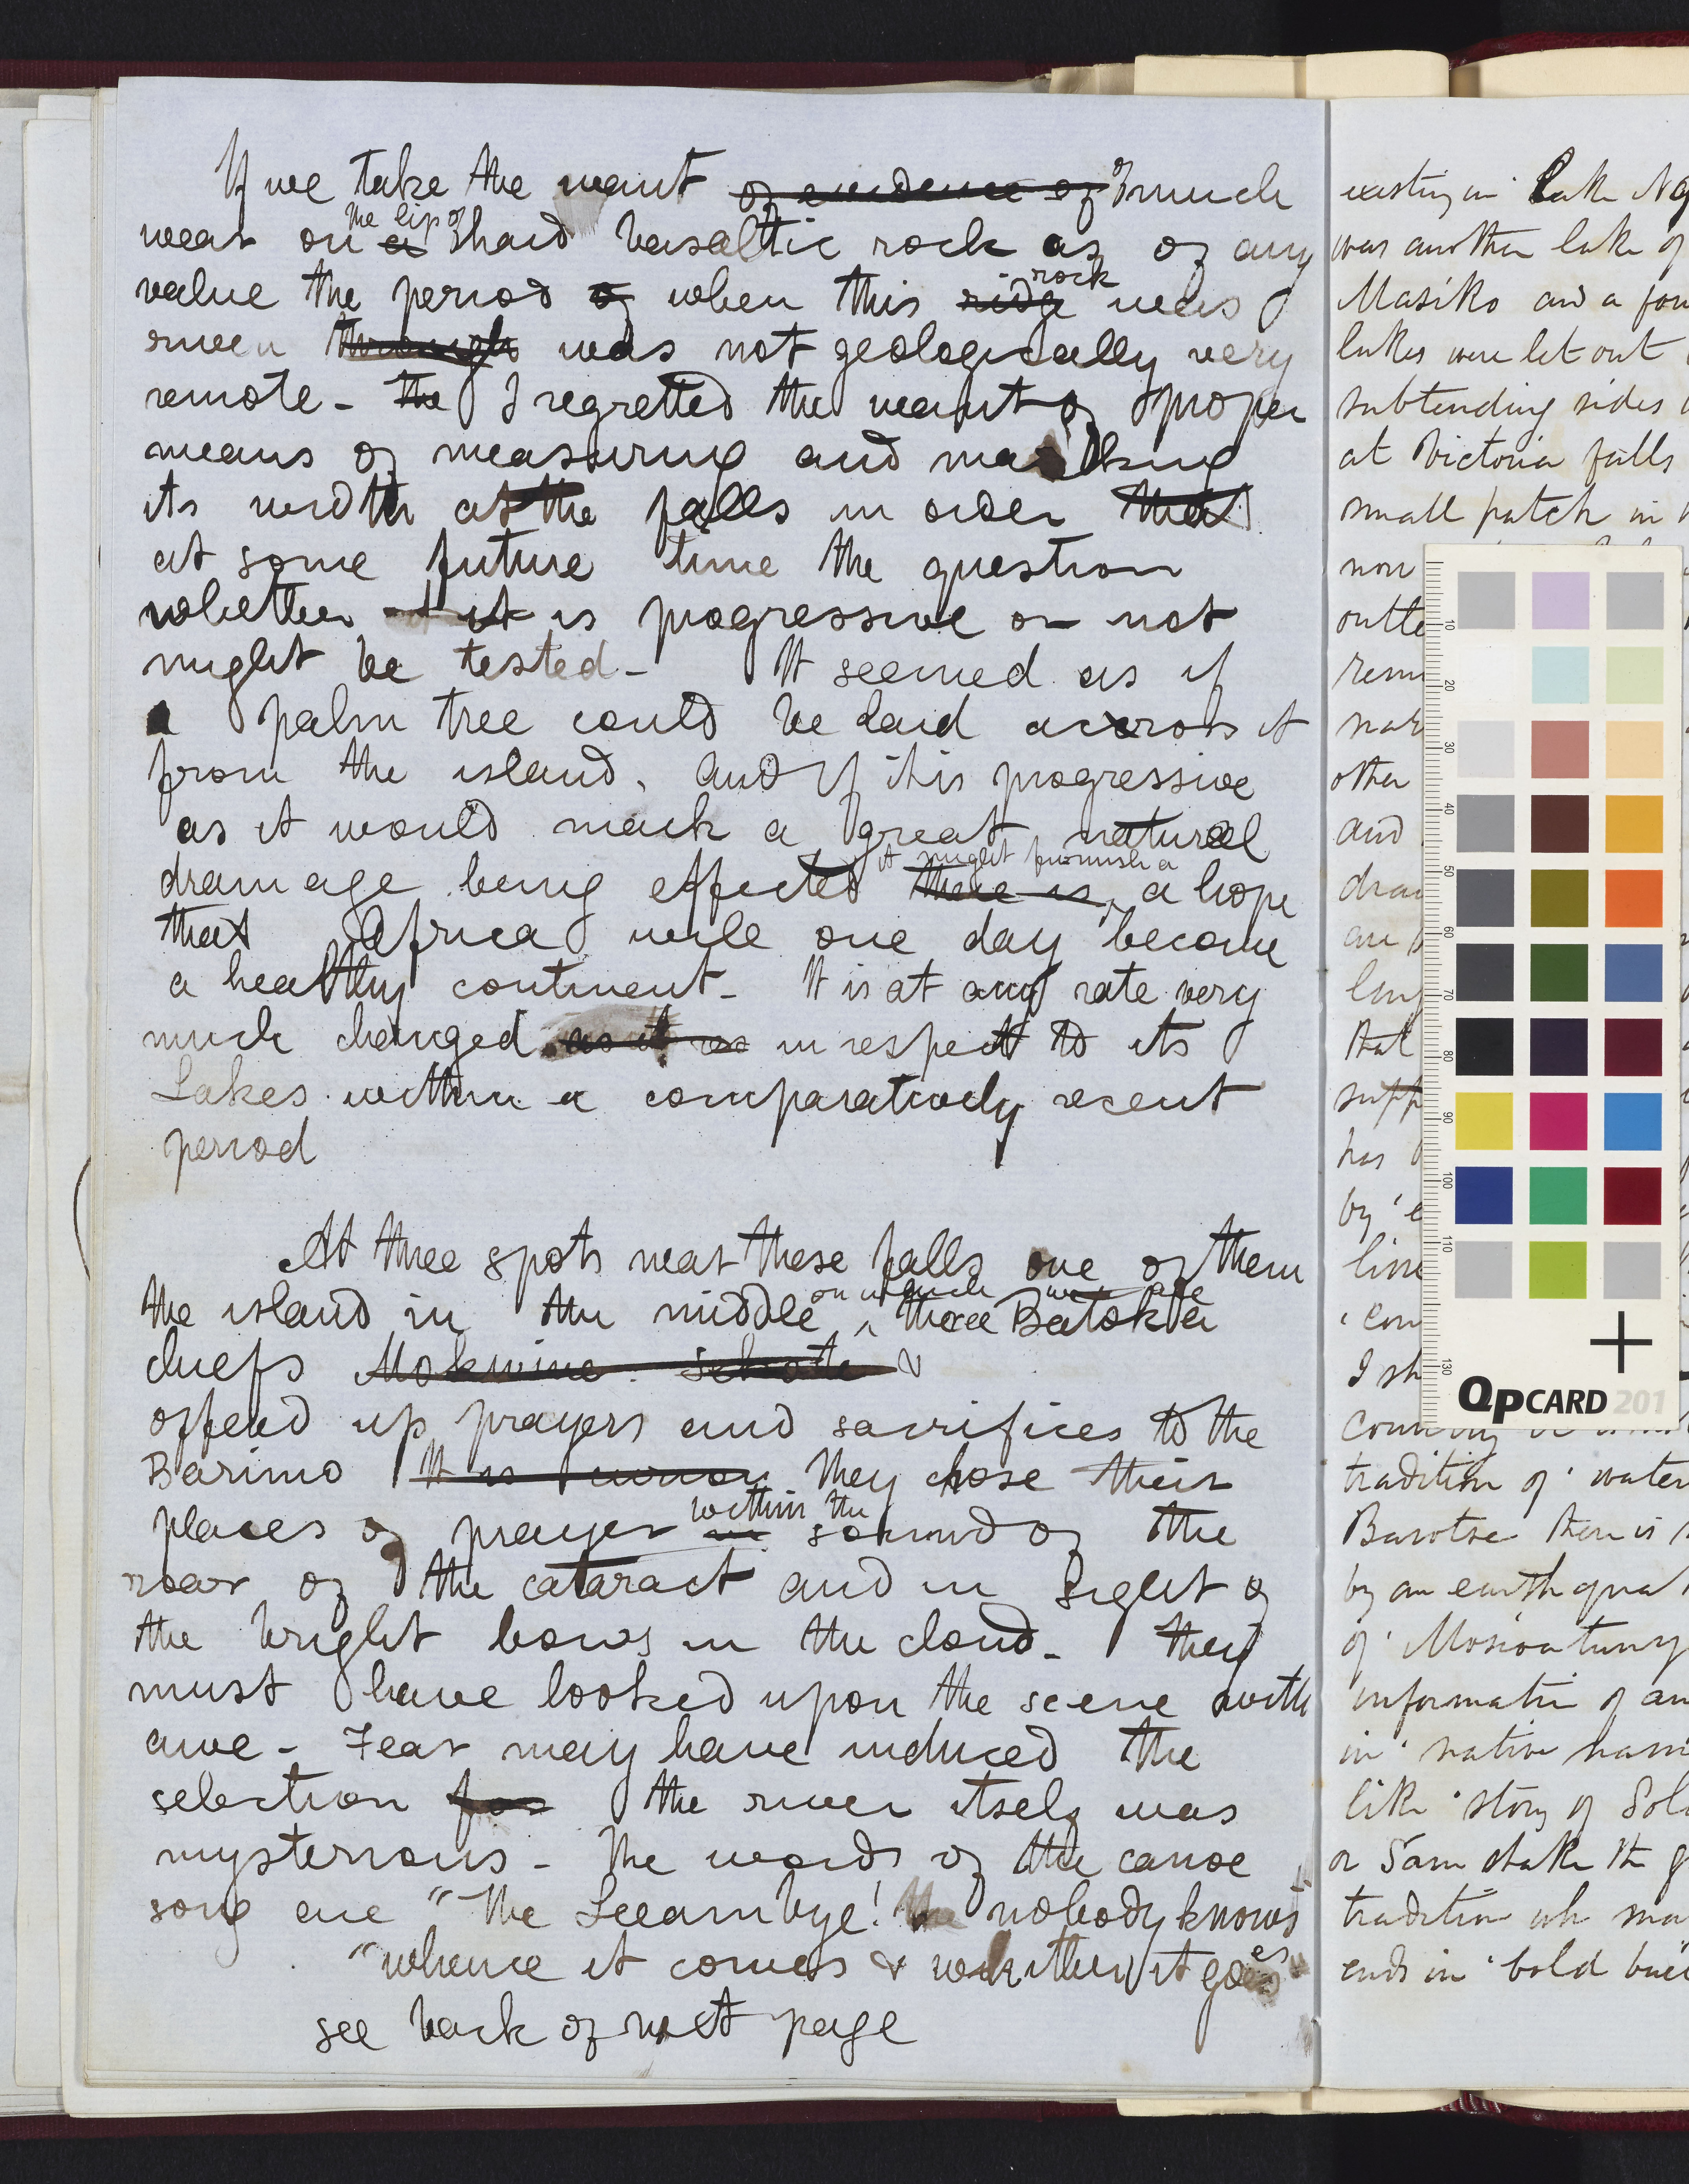 If we take the want of evidence of of much
wear on a the lip of hard basaltic rock as of any
value the period of when this ridge rock was
riven through was not geologically very
remote - the I regretted the want of proper
means of measuring and marking
its width at the falls in order that
at some future time the question
whether it is progressive or not
might be tested - It seemed as if
a palm tree could be laid across it
from the island. And if it is progressive
as it would mark a great natural
drainage being effected there is it might furnish a a hope
that Africa will one day become
a healthy continent - It is at any rate very
much changed as it is in respect to its
Lakes within a comparatively recent
period
At three spots near these falls one of them
the island in the middle on which three Batoka
chiefs Mokwine Sekote &
offered up prayers and sacrifices to the
Barimo It is They chose their
places of prayer in within the sound of the
roar of the cataract and in sight of
the bright bows in the cloud - They
must have looked upon the scene with
awe - Fear may have induced the
selection for the river itself was
mysterious - The words of the canoe
song are "The Leeambye! The nobody knows
"whence it comes & whither it goes"
see back of next page
existing in Lake Ng
was another lake of
Masiko and a fou
lakes were let out
subtending sides
at Victoria falls
small patch in
non
outle
rem
nat
other
and
drai
an
long
that
supp
has
by
line
con
I sh
country
tradition of water
Barotse then is
by an earthquak
of Mosioatuny
information of an
in native nam
like story of Sol
or Sam shake the g
tradition wh ma
ends in bold
10
20
30
40
50
60
70
80
90
100
110
130
QPCARD 201